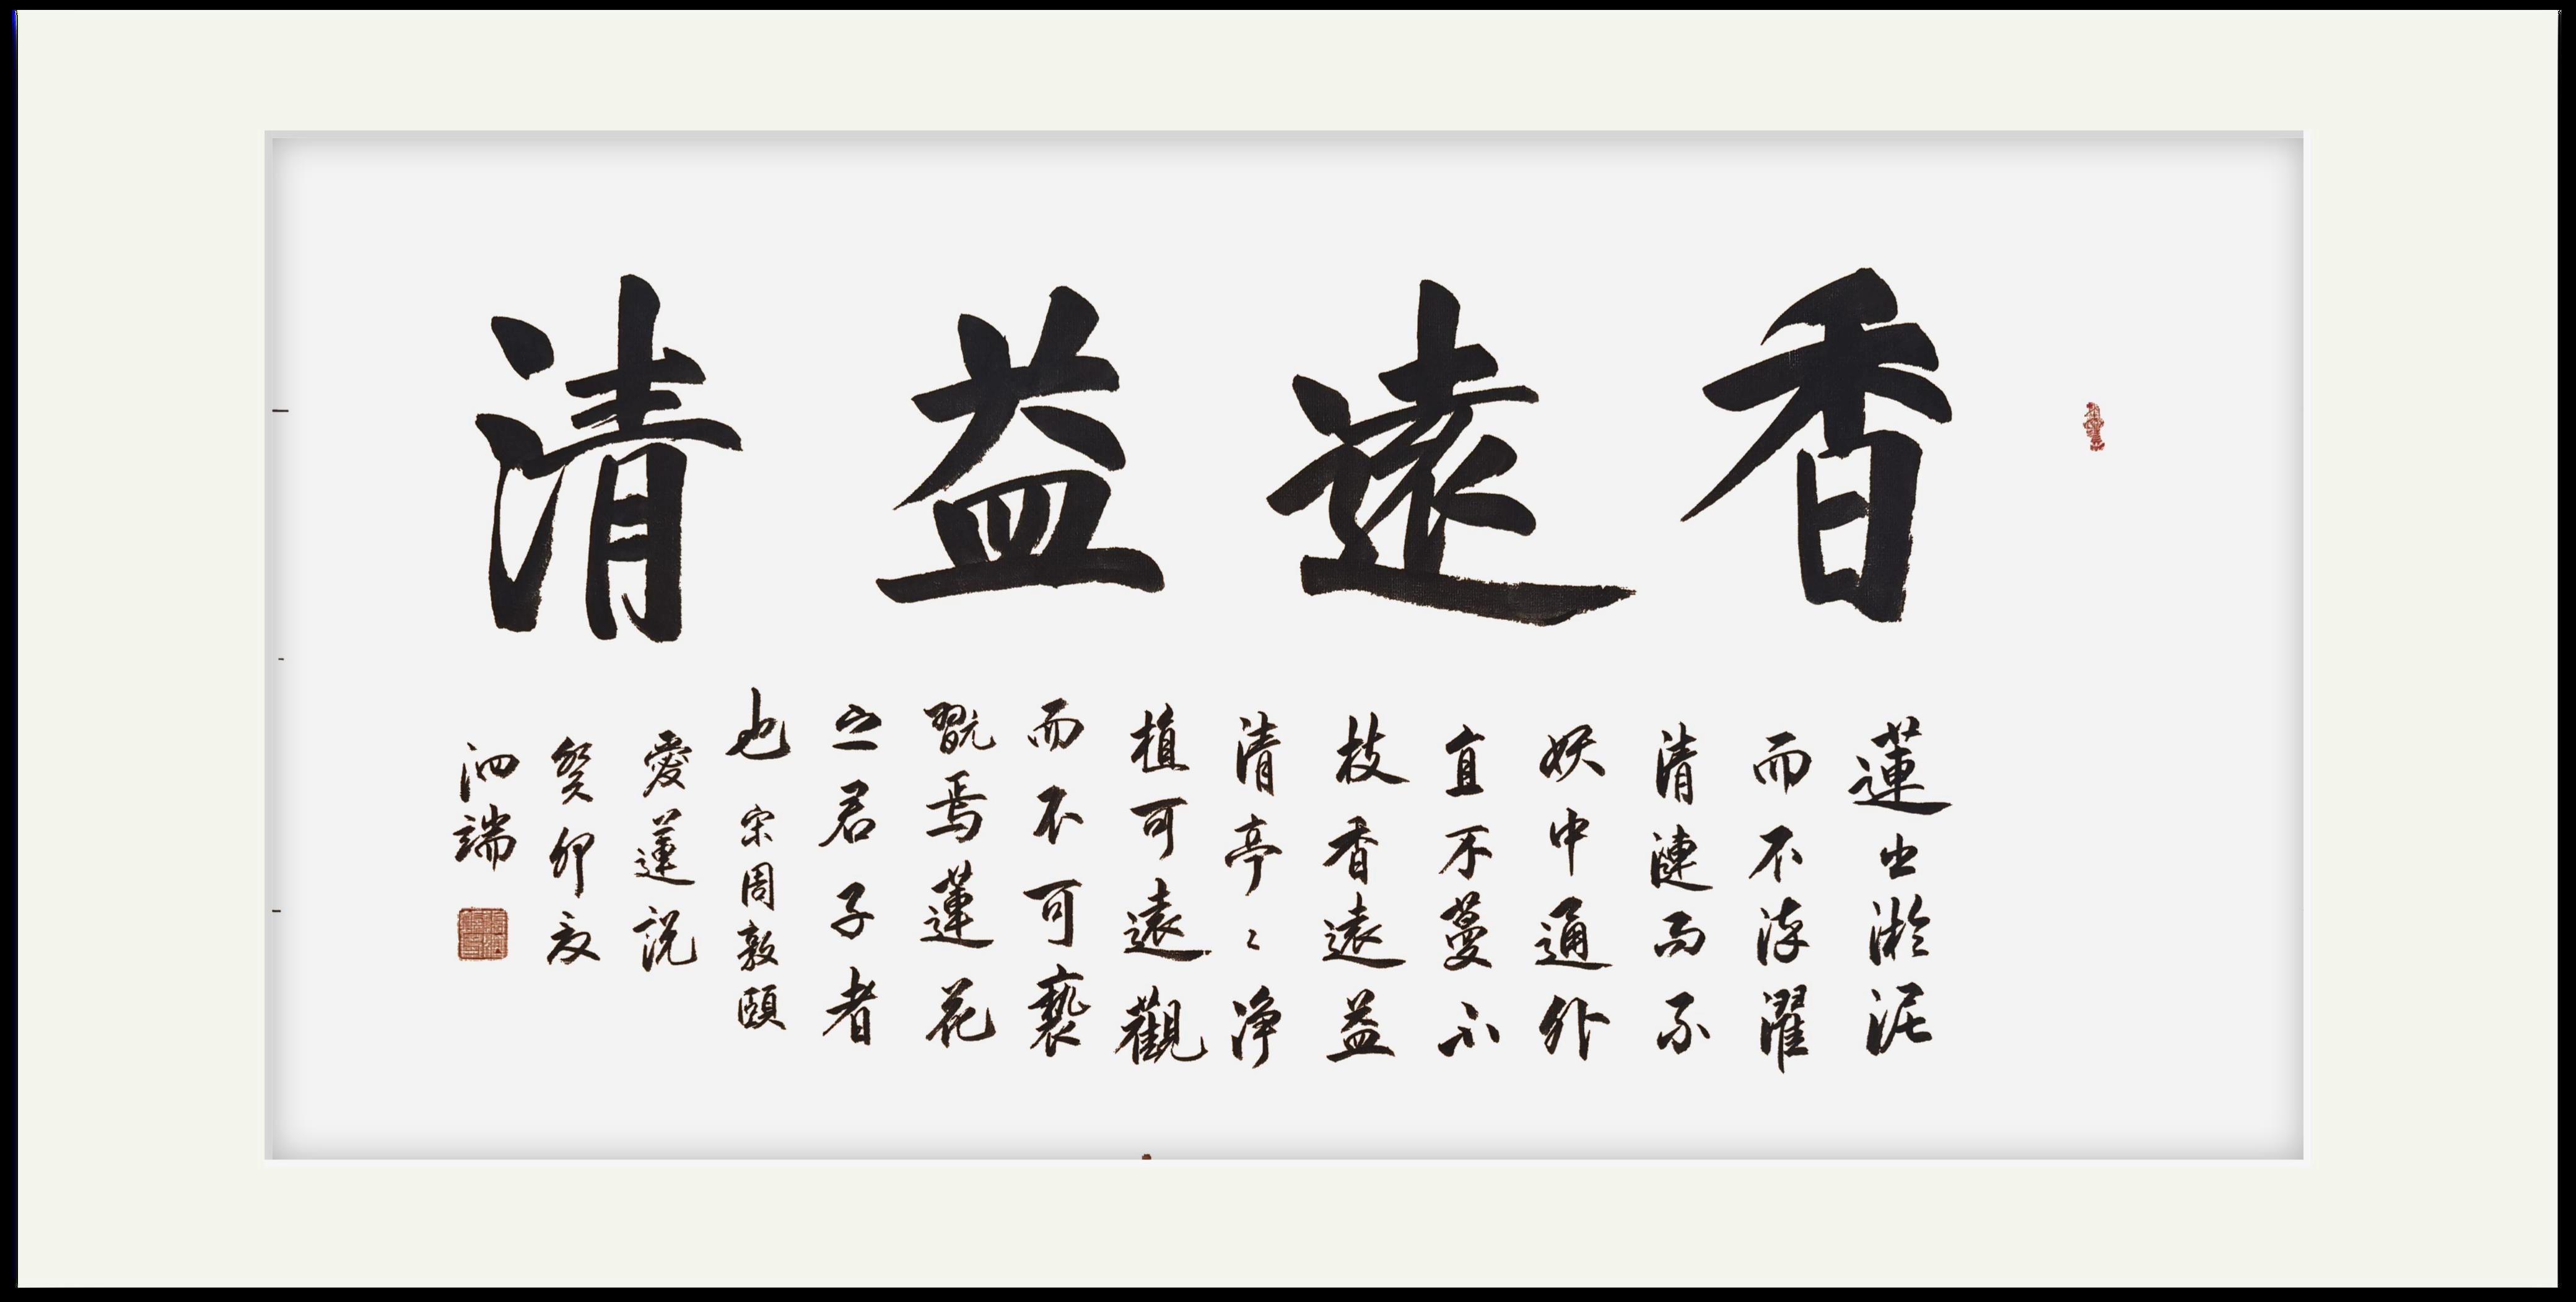 香遠益清
蓮出淤泥
而不滓濯
清漣而不
妖中通外
直不蔓不
枝香遠益
清亭〻净
植可遠觀
而不可褻
翫焉蓮花
之君子者
也 宋周敦頤
愛蓮説
癸卯夏
泗端